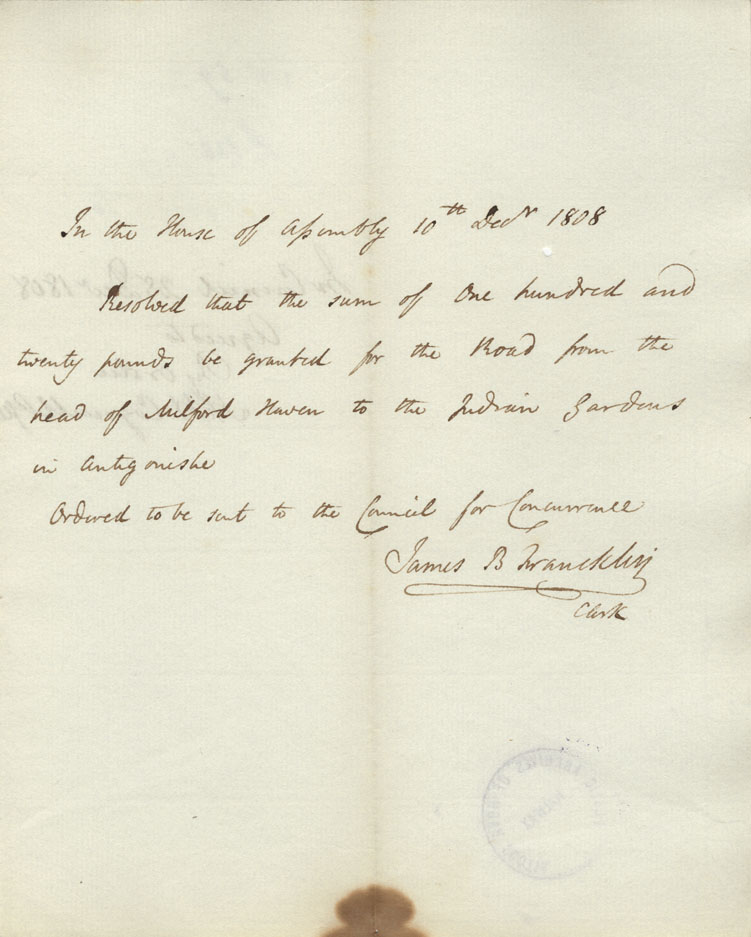 In the House of Assembly 10th Decr 1808
Resolved that the sum of One hundred and
twenty pounds be granted for the Road from the
head of Milford Haven to the Indian Gardens
in Antigonishe
Ordered to be sent to the Council for Concurrence
James B Franckling
Clerk